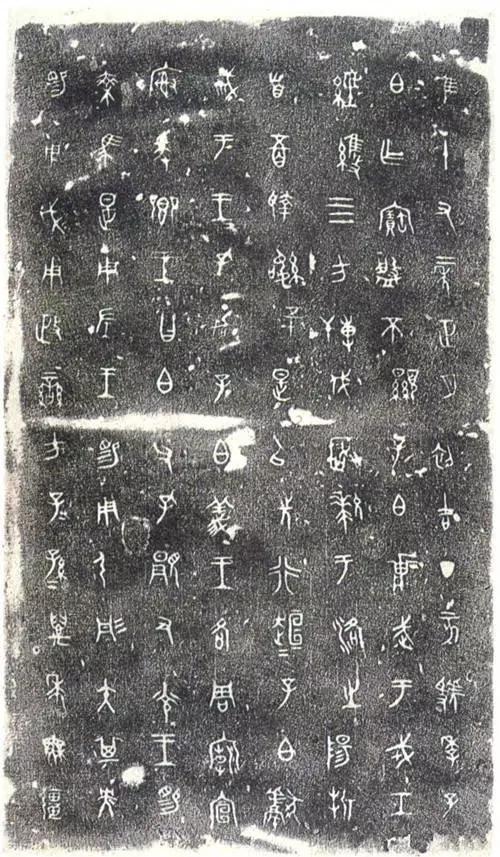 隹十又二年正月初吉丁亥虢季子
白乍寶盤不顯子白壯武于戎工
經維四方搏伐玁狁于洛之陽折
首五百執訊五十是以先行桓=子白獻
馘于王=孔加子白義王各周廟宣
榭爰鄉王曰白父孔覭又光王賜
乘馬是用左王賜用弓彤矢其央
賜用戉用政蠻方子=孫=萬年無疆